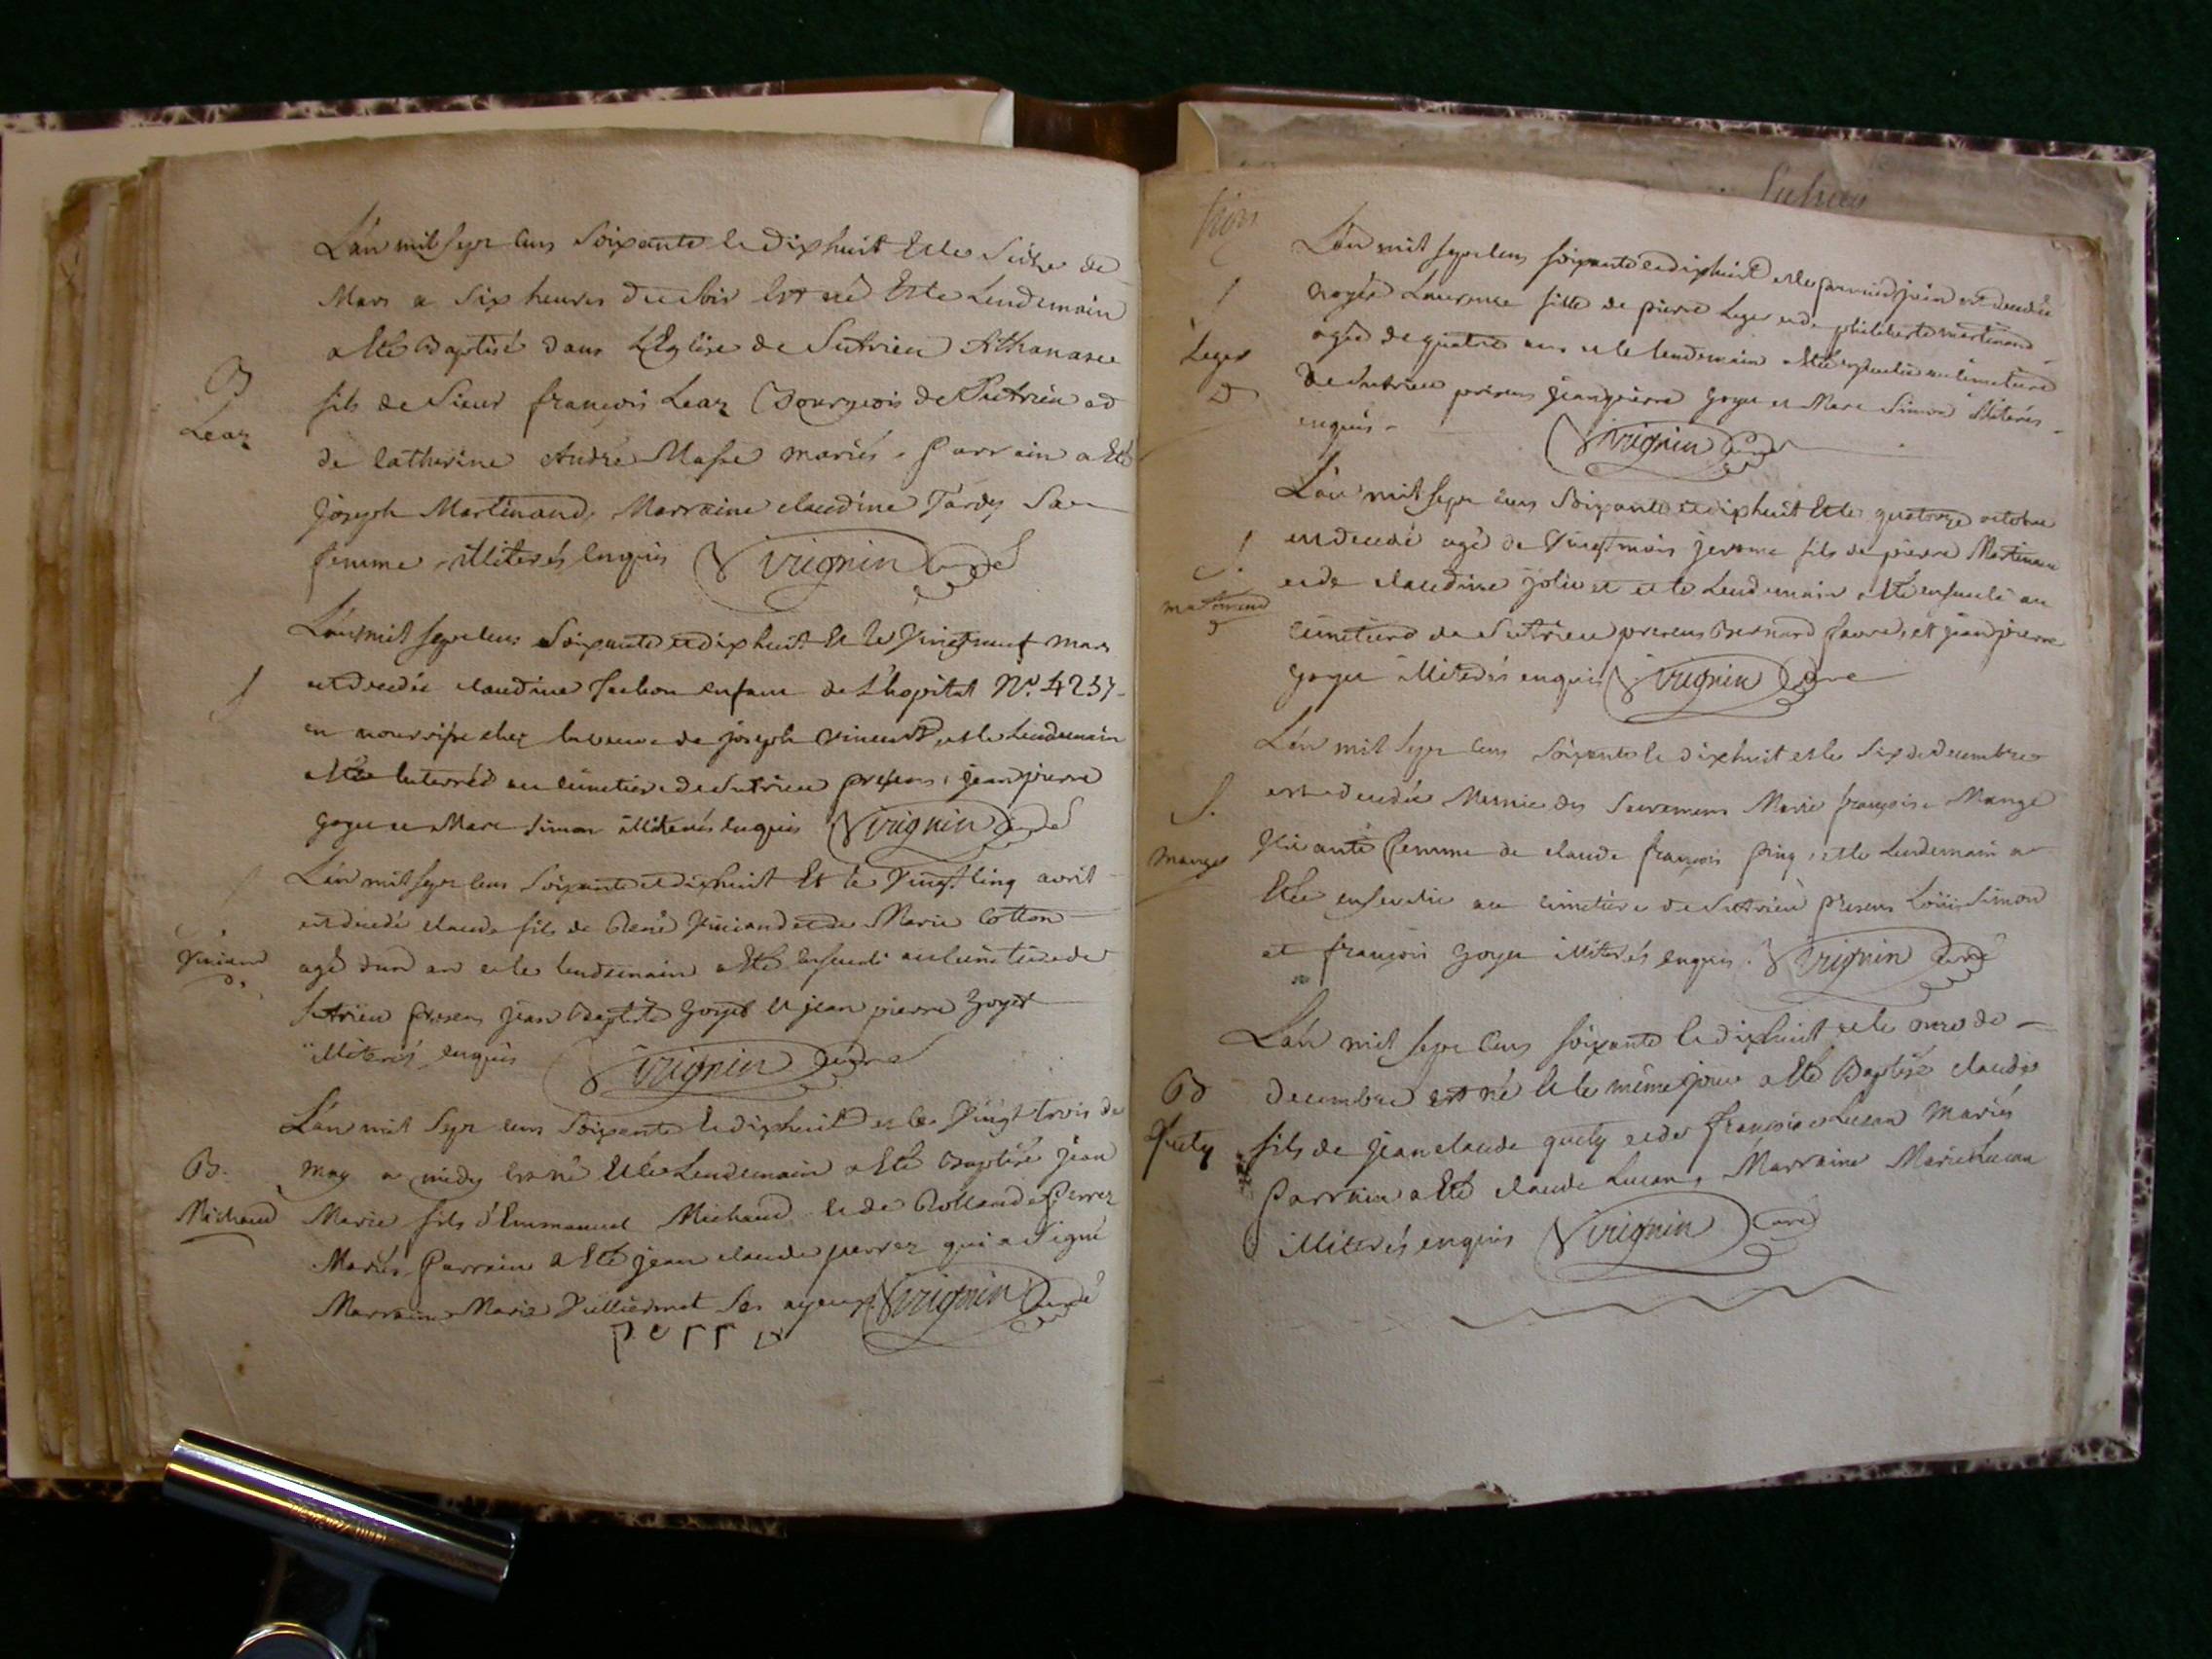 B
Leaz
L'an mil sept cens soixante et dix huit et le seize de
Mars a six heures du soir est né et le Lendemain
a eté Baptisé dans L'Eglise de Sutrieu Athanase
fils de Sieur françois Leaz Bourgeois de Sutrieu et
de Catherine André Masse mariés. Parrain a eté
joseph Martinand, Marraine claudine Tardy Sa
femme illiterés enquis Vrignin curé
L'an mil sept cens soixante et dix huit et le vingt neuf mars
est decedée claudine enfant de L'hopital N°. 4237
en nourrisse chez la veuve de joseph vincent, et le Lendemain
a eté enterrée au cimetiere de Sutrieu presens, jean pierre
goyet et Marc Simon illiterés enquis Vrignin curé
Viviand
L'an mil sept cens soixante et dix huit et le vingt cinq avril
est decedé claude fils de René Viviand et de Marie Cotton
agé d'un an et le lendemain a eté enseveli au cimetiere de
Sutrieu presens jean Baptiste goyet et jean pierre goyet
illiterés enquis Vrignin curé
B.
Michaud
L'an mil sept cens soixante et dix huit et le vingt trois de
may a midy est né et le Lendemain a eté baptisé jean
Marie fils d'Emmanuel Michaud et de Rollande Perrez
Mariés Parrain a eté jean claude perrez qui a signé
Marraine Marie Vulliermet ses ayeux Vrignin curé
Leger
L'an mil sept cens soixante et dix huit et le juin est decedée
noyée Laurence fille de pierre Leger et de philiberte martinand
agée de quatre ans et le lendemain a eté ensevelie au cimetiere
de Sutrieu presens jean pierre goyet et Marc Simon illiterés
enquis Vrignin curé
martinand
L'an mil sept cens soixante et dix huit et le quatorze octobre
est decedé agé de vingt mois jerome fils de pierre Martinand
et de claudine joliet et le Lendemain a eté enseveli au
cimetiere de Sutrieu presens Bernard favre, et jean pierre
goyet illiterés enquis Vrignin curé
S.
Mange
L'an mil sept cens soixante et dix huit et le six de decembre
est decedée Munie des Sacremens Marie françoise Mange
vivante femme de claude françois, et le Lendemain a
eté ensevelie au cimetiere de Sutrieu presens Loüis Simon
et françois goyet illiterés enquis. Vrignin curé
B
quety
L'an mil sept cens soixante et dix huit et le onze de
decembre est né et le même jour a eté Baptisé claude
fils de jean claude quety et de françoise Lucan Mariés
Parrain a eté claude Lucan, Marraine Marie Lucan
illiterés enquis Vrignin curé